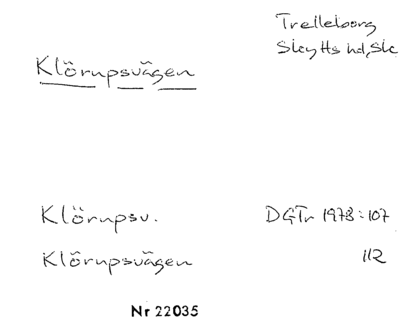 Trelleborg
Skytts hd, Sk
Klörupsvägen
Klörupsv. DGTr 1978:107
Klörupsvägen 112
Nr 22035